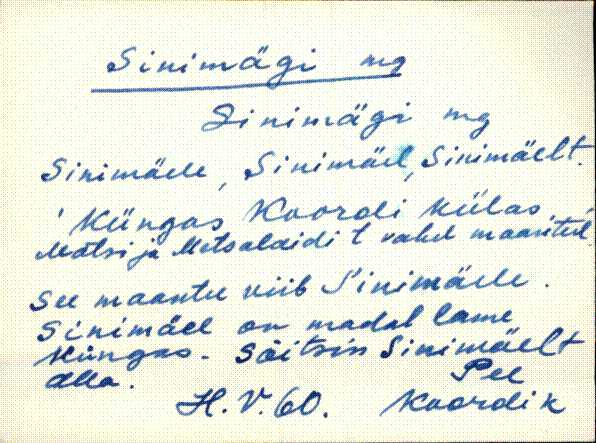 Sinimägi mg
Sinimägi mg
Sinimäele, Sinimäel, Sinimäelt.
' Küngas Koordi külas,
Matsi ja Metsalaidi t vahel maanteel.'
See maantee viib Sinimäele.
Sinimäel on madal lame
küngas. Sõitsin Sinimäelt
alla. Pee
H. V. 60. Koordi k